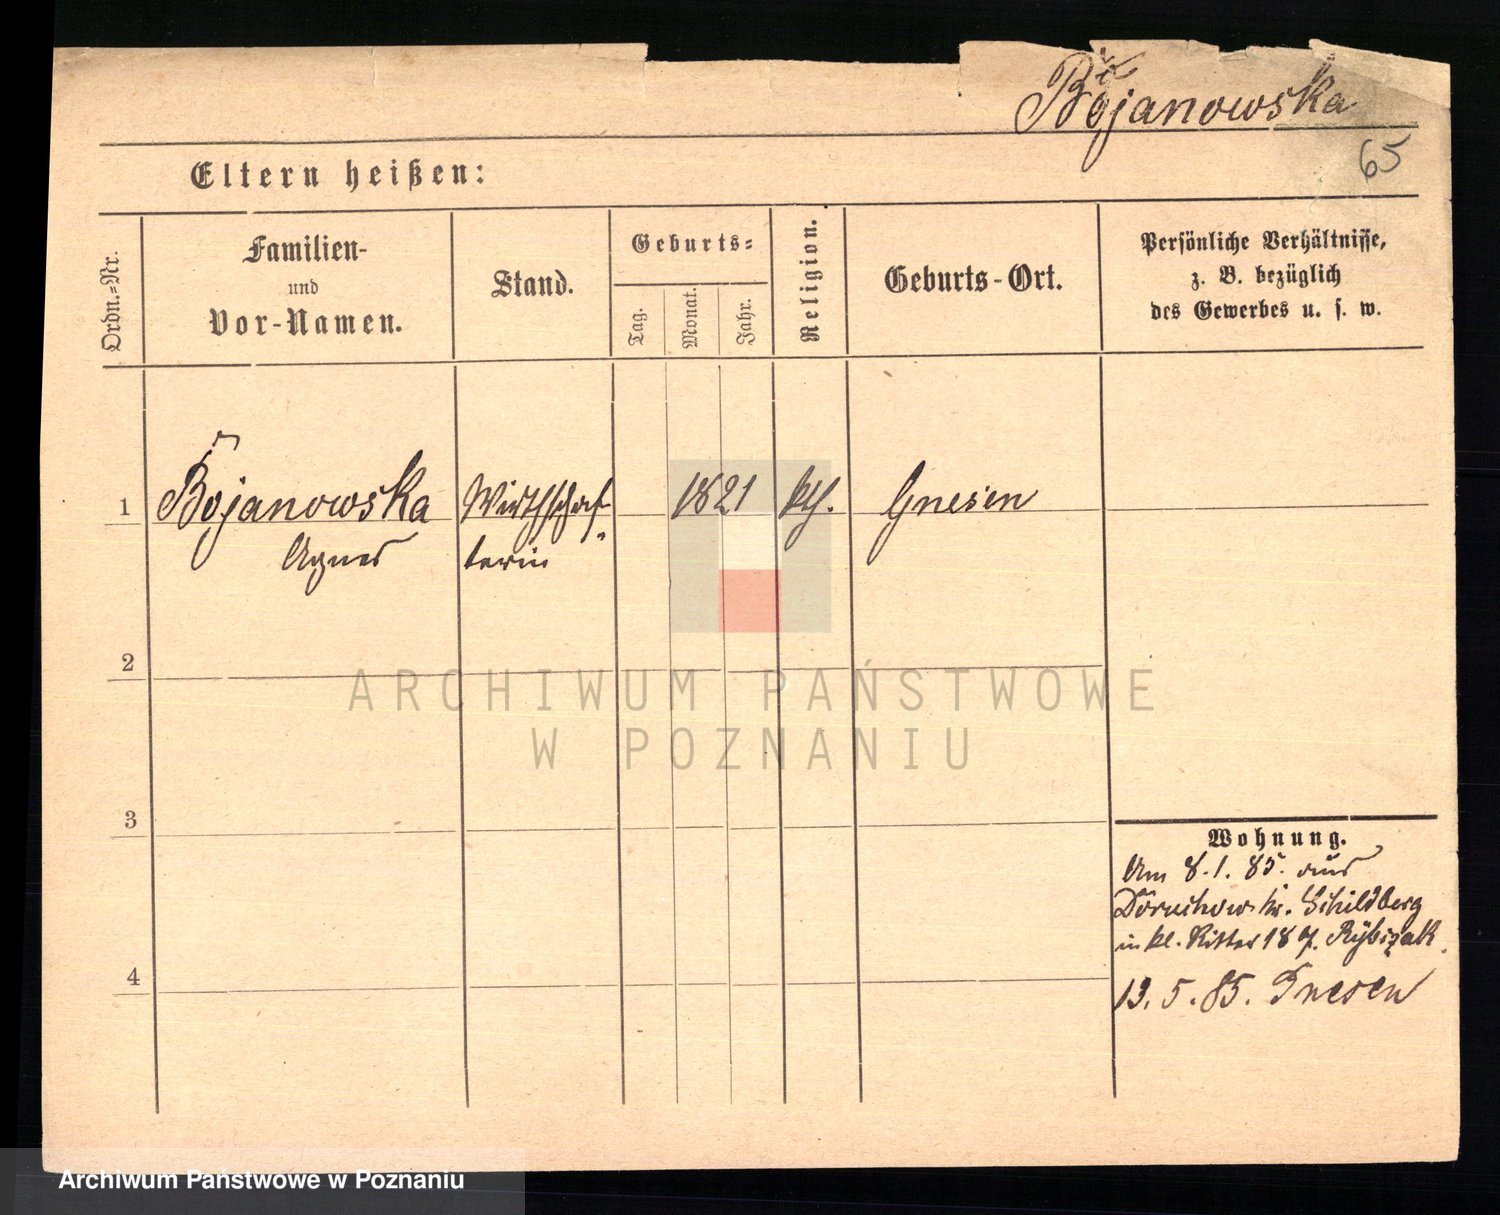 Bojanowska
65
Eltern heißen:
Ordn.-Nr.
Familien-
und
Vor-Namen.
Stand.
Geburts-
Tag.
Monat.
Jahr.
Religion.
Geburts-Ort.
Persönliche Verhältnisse,
z. B. bezüglich
des Gewerbes u. s. w.
1
Bojanowska
Agnes
Wirthschaf-
terin
1821
kth.
Gnesen
2
3
4
Wohnung.
Am 8.1.85. aus
Doruchow kr. Schildberg
in kl. Ritter 18 Rybizak
13.5.85. Gnesen
ARCHIWUM PAŃSTWOWE
W POZNANIU
Archiwum Państwowe w Poznaniu